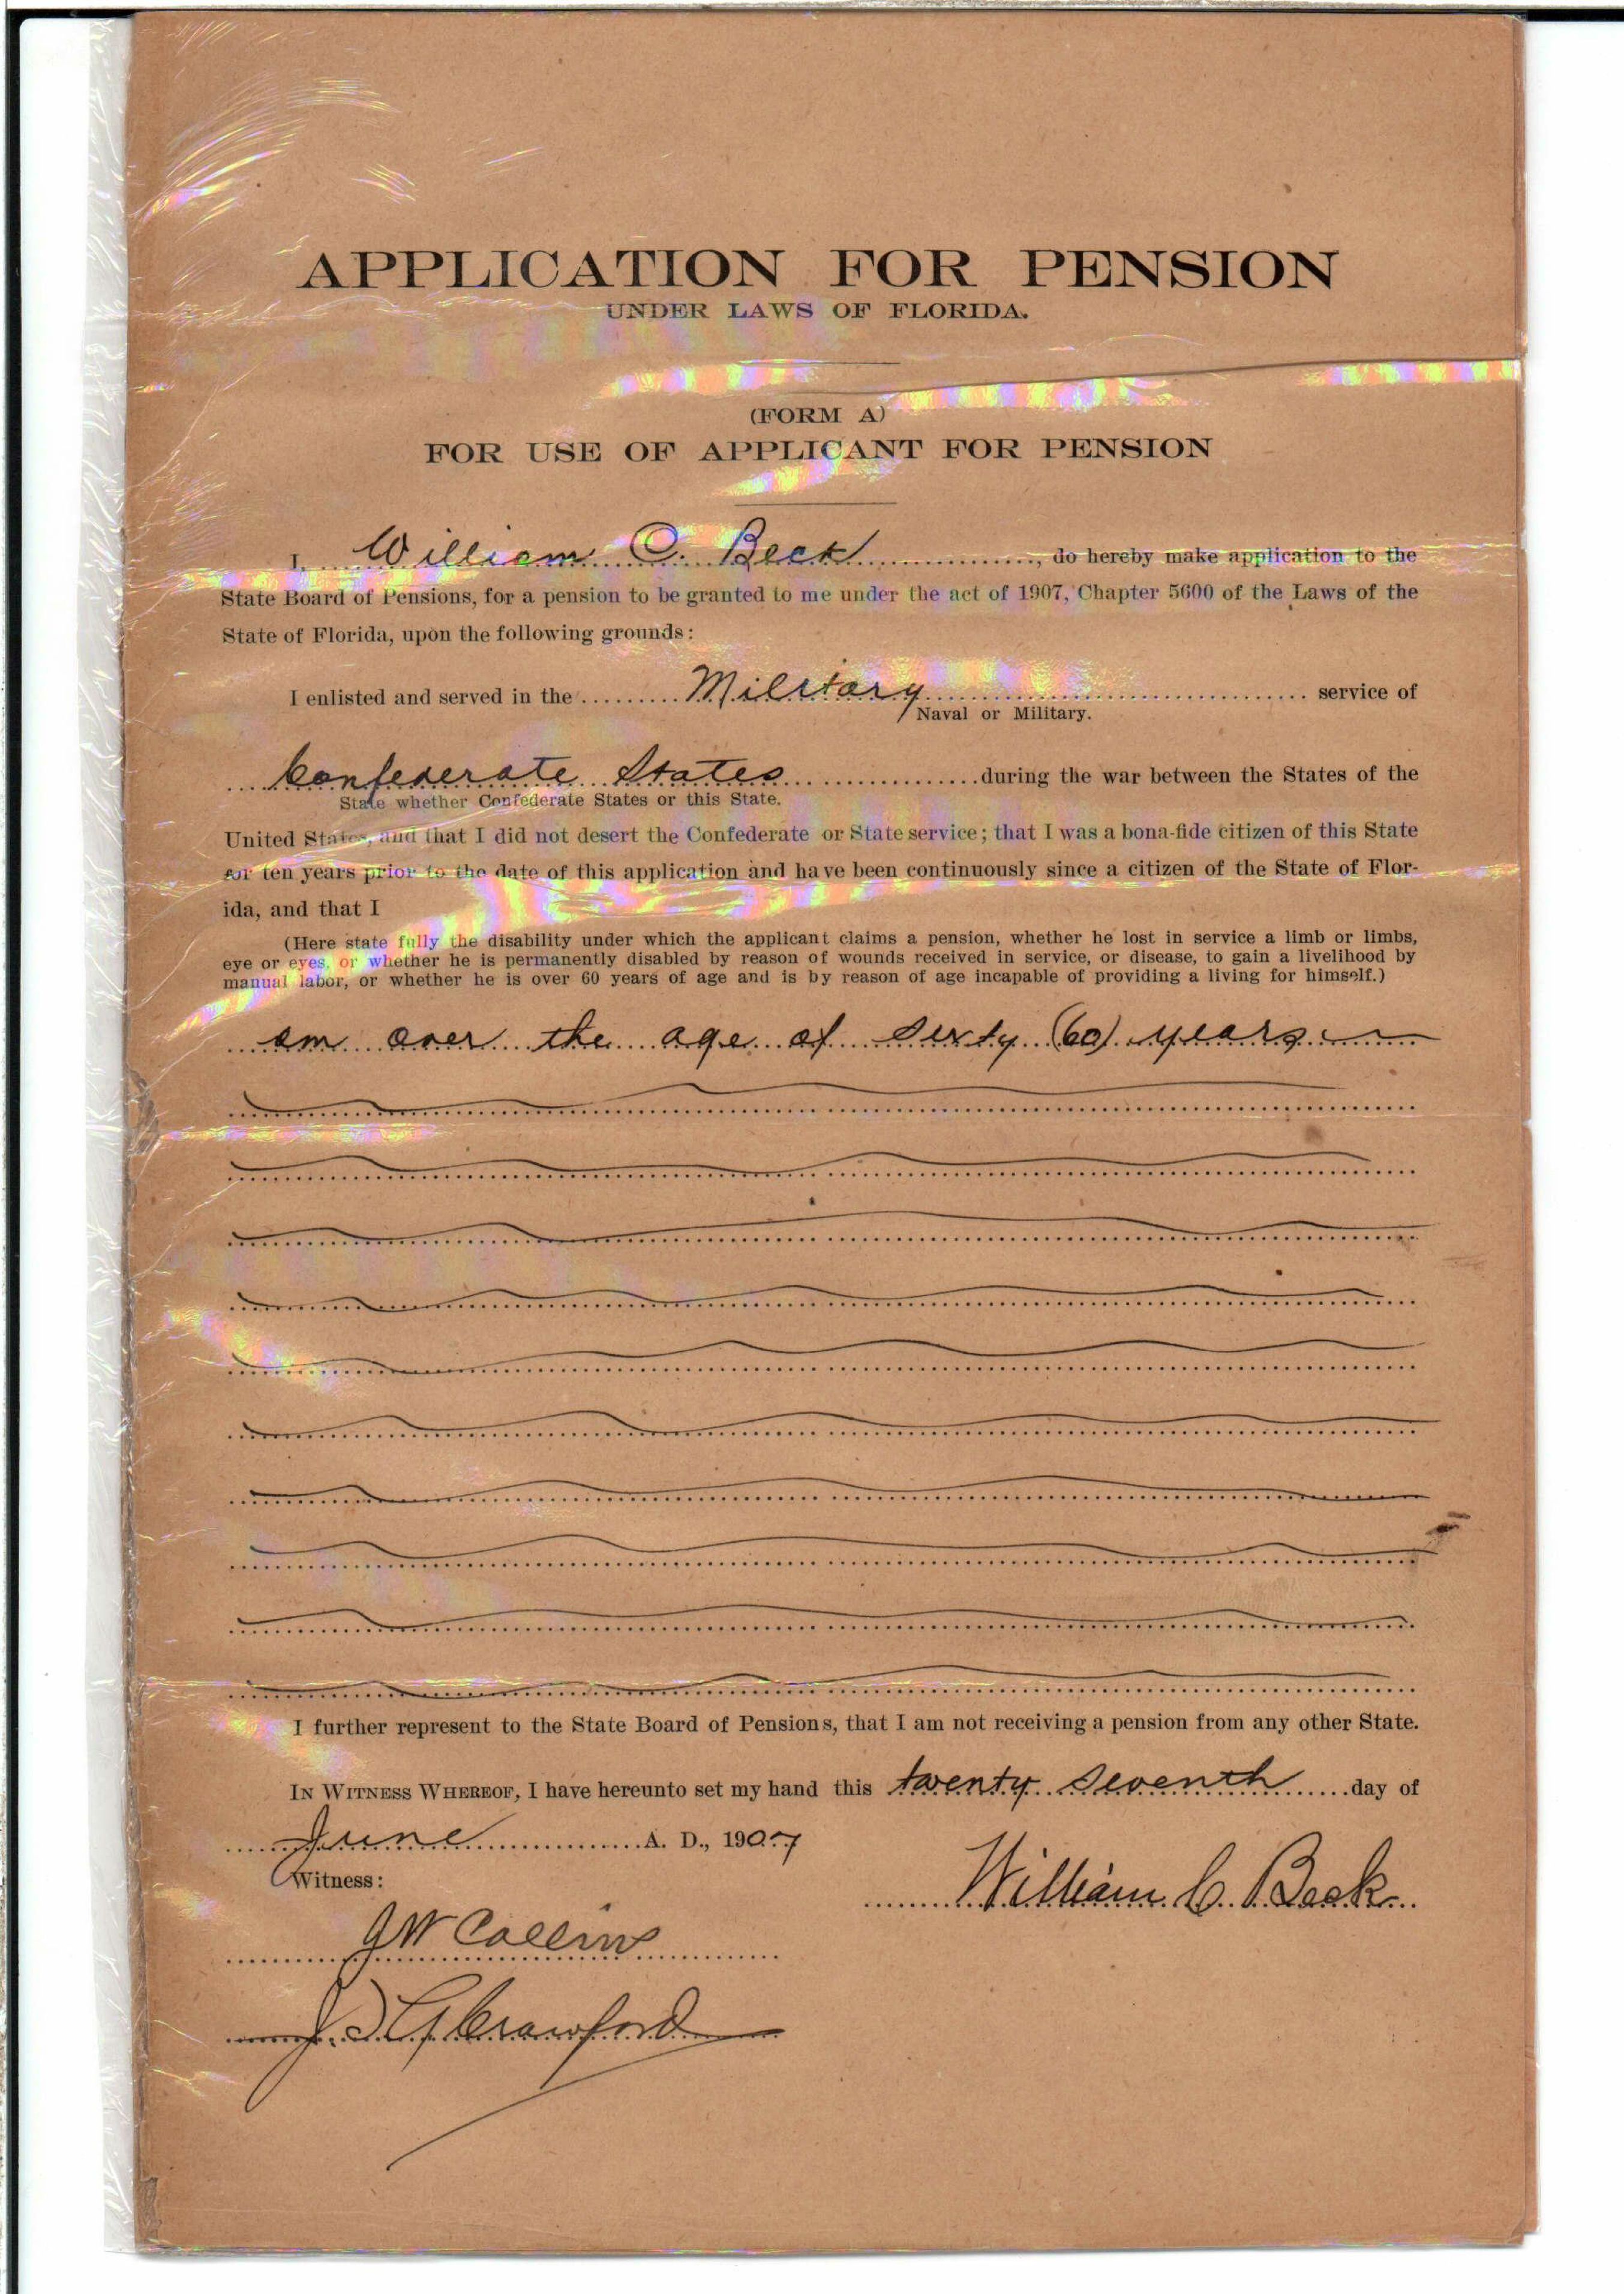 APPLICATION FOR PENSION
UNDER LAWS OF FLORIDA.
(FORM A)
FOR USE OF APPLICANT FOR PENSION
I, William C. Beck, do hereby make application to the
State Board of Pensions, for a pension to be granted to me under the act of 1907, Chapter 5600 of the Laws of the
State of Florida, upon the following grounds:
I enlisted and served in the Military service of
Naval or Military.
Confederate States during the war between the States of the
State whether Confederate States or this State.
United States, and that I did not desert the Confederate or State service; that I was a bona-fide citizen of this State
for ten years prior to the date of this application and have been continuously since a citizen of the State of Flor-
ida, and that I
(Here state fully the disability under which the applicant claims a pension, whether he lost in service a limb or limbs,
eye or eyes, or whether he is permanently disabled by reason of wounds received in service, or disease, to gain a livelihood by
manual labor, or whether he is over 60 years of age and is by reason of age incapable of providing a living for himself.)
am over the age of sixty (60) years
I further represent to the State Board of Pensions, that I am not receiving a pension from any other State.
IN WITNESS WHEREOF, I have hereunto set my hand this twenty seventh day of
June A. D., 1907
Witness:
William C. Beck
J W Collins
Crawford